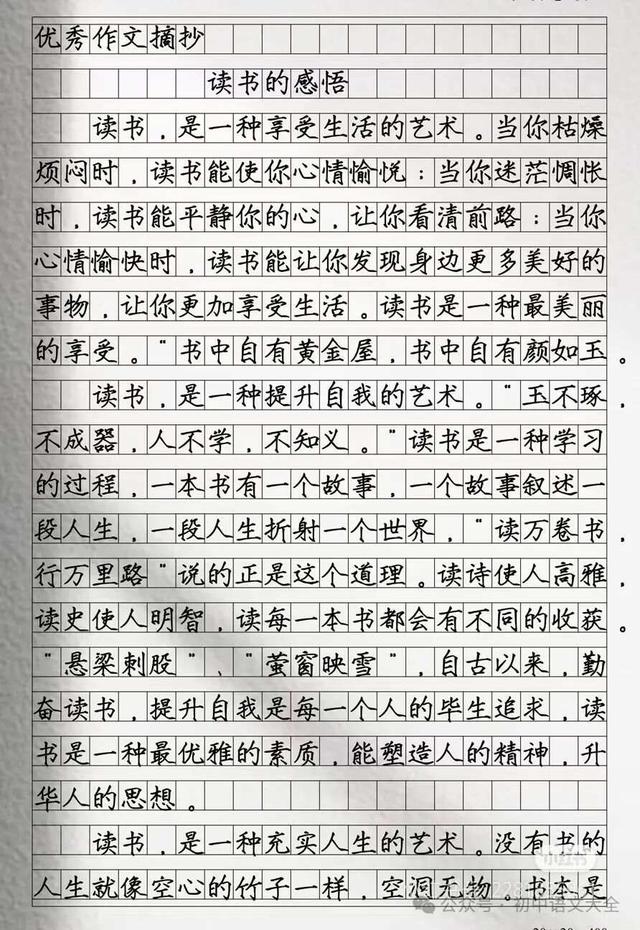 优秀作文摘抄
读书的感悟
读书，是一种享受生活的艺术。当你枯燥
烦闷时，读书能使你心情愉悦；当你迷茫惆怅
时，读书能平静你的心，让你看清前路；当你
心情愉快时，读书能让你发现身边更多美好的
事物，让你更加享受生活。读书是一种最美丽
的享受。“书中自有黄金屋，书中自有颜如玉。
读书，是一种提升自我的艺术。“玉不琢，
不成器，人不学，不知义。”读书是一种学习
的过程，一本书有一个故事，一个故事叙述一
段人生，一段人生折射一个世界，“读万卷书，
行万里路”说的正是这个道理。读诗使人高雅，
读史使人明智，读每一本书都会有不同的收获。
“悬梁刺股”、“萤窗映雪”，自古以来，勤
奋读书，提升自我是每一个人的毕生追求，读
书是一种最优雅的素质，能塑造人的精神，升
华人的思想。
读书，是一种充实人生的艺术。没有书的
人生就像空心的竹子一样，空洞无物。书本是
小红书
公众号·初中语文大全